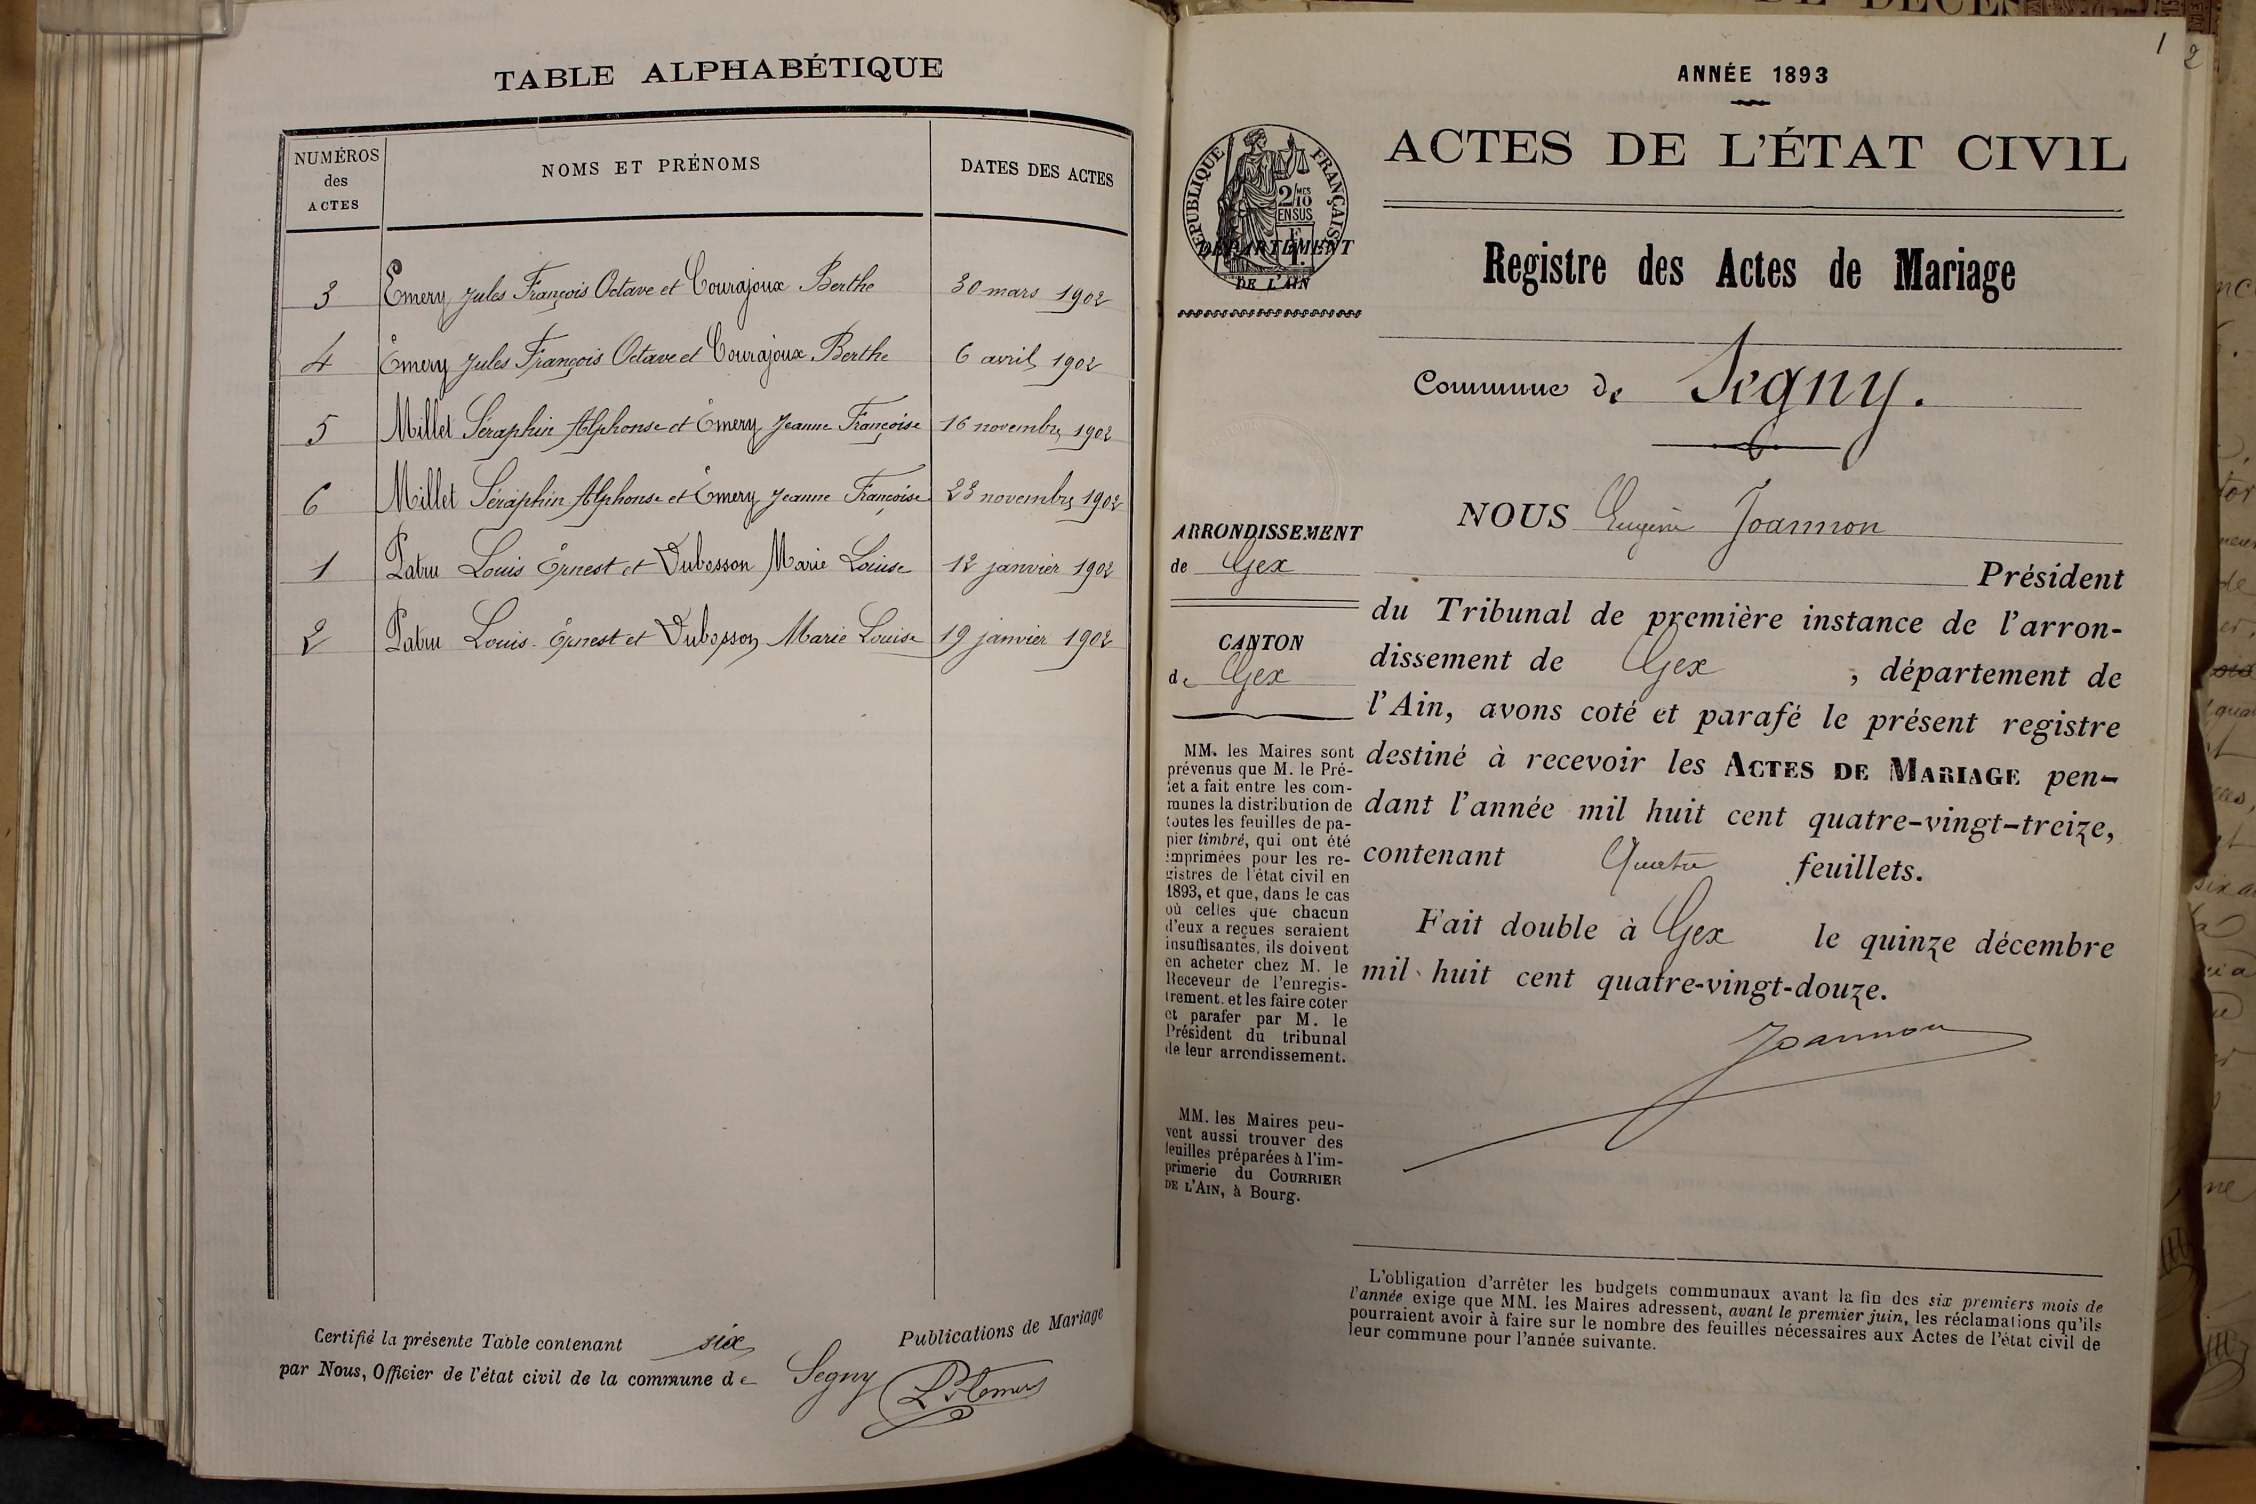 TABLE ALPHABÉTIQUE
NUMÉROS
des
ACTES
NOMS ET PRÉNOMS
DATES DES ACTES
3 Emery Jules François Octave et Courajoux Berthe 30 mars 1902
4 Emery Jules François Octave et Courajoux Berthe 6 avril 1902
5 Millet Séraphin Alphonse et Emery Jeanne Françoise 16 novembre 1902
6 Millet Séraphin Alphonse et Emery Jeanne Françoise 23 novembre 1902
1 Patru Louis Ernest et Dubosson Marie Louise 12 janvier 1902
2 Patru Louis Ernest et Dubosson Marie Louise 19 janvier 1902
Certifié la présente Table contenant six Publications de Mariage
par Nous, Officier de l'état civil de la commune de Segny
1
2
ANNÉE 1893
ACTES DE L'ÉTAT CIVIL
RÉPUBLIQUE FRANÇAISE
2/10
MES
EN SUS
DÉPARTEMENT
DE L'AIN
Registre des Actes de Mariage
Commune de Segny.
NOUS Eugène Joannon
Président
du Tribunal de première instance de l'arron-
dissement de Gex, département de
l'Ain, avons coté et parafé le présent registre
destiné à recevoir les ACTES DE MARIAGE pen-
dant l'année mil huit cent quatre-vingt-treize,
contenant Quatre feuillets.
Fait double à Gex le quinze décembre
mil huit cent quatre-vingt-douze.
Joannon
ARRONDISSEMENT
de Gex
CANTON
de Gex
MM. les Maires sont
prévenus que M. le Pré-
fet a fait entre les com-
munes la distribution de
toutes les feuilles de pa-
pier timbré, qui ont été
imprimées pour les re-
gistres de l'état civil en
1893, et que, dans le cas
où celles que chacun
d'eux a reçues seraient
insuffisantes, ils doivent
en acheter chez M. le
Receveur de l'enregis-
trement, et les faire coter
et parafer par M. le
Président du tribunal
de leur arrondissement.
MM. les Maires peu-
vent aussi trouver des
feuilles préparées à l'im-
primerie du COURRIER
DE L'AIN, à Bourg.
L'obligation d'arrêter les budgets communaux avant la fin des six premiers mois de
l'année exige que MM. les Maires adressent, avant le premier juin, les réclamations qu'ils
pourraient avoir à faire sur le nombre des feuilles nécessaires aux Actes de l'état civil de
leur commune pour l'année suivante.